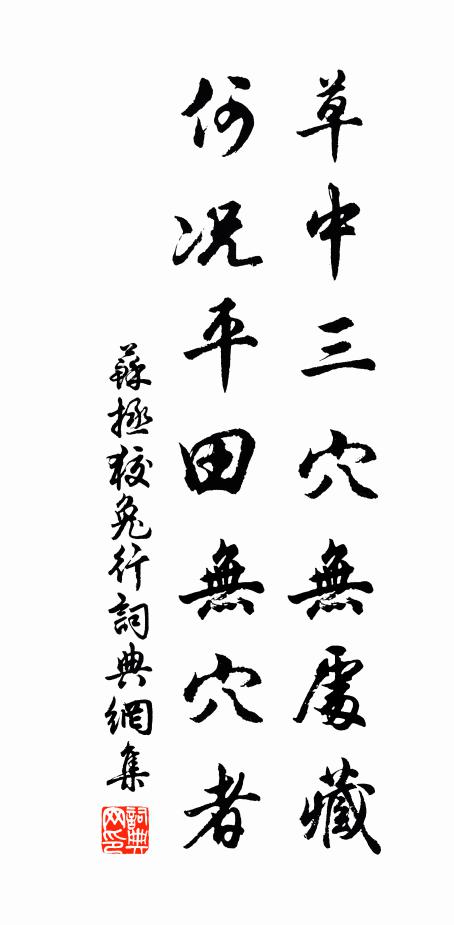 草中三穴無處藏
何况平田無穴者
蘇拯狡兔行詞典網集
詞典網印